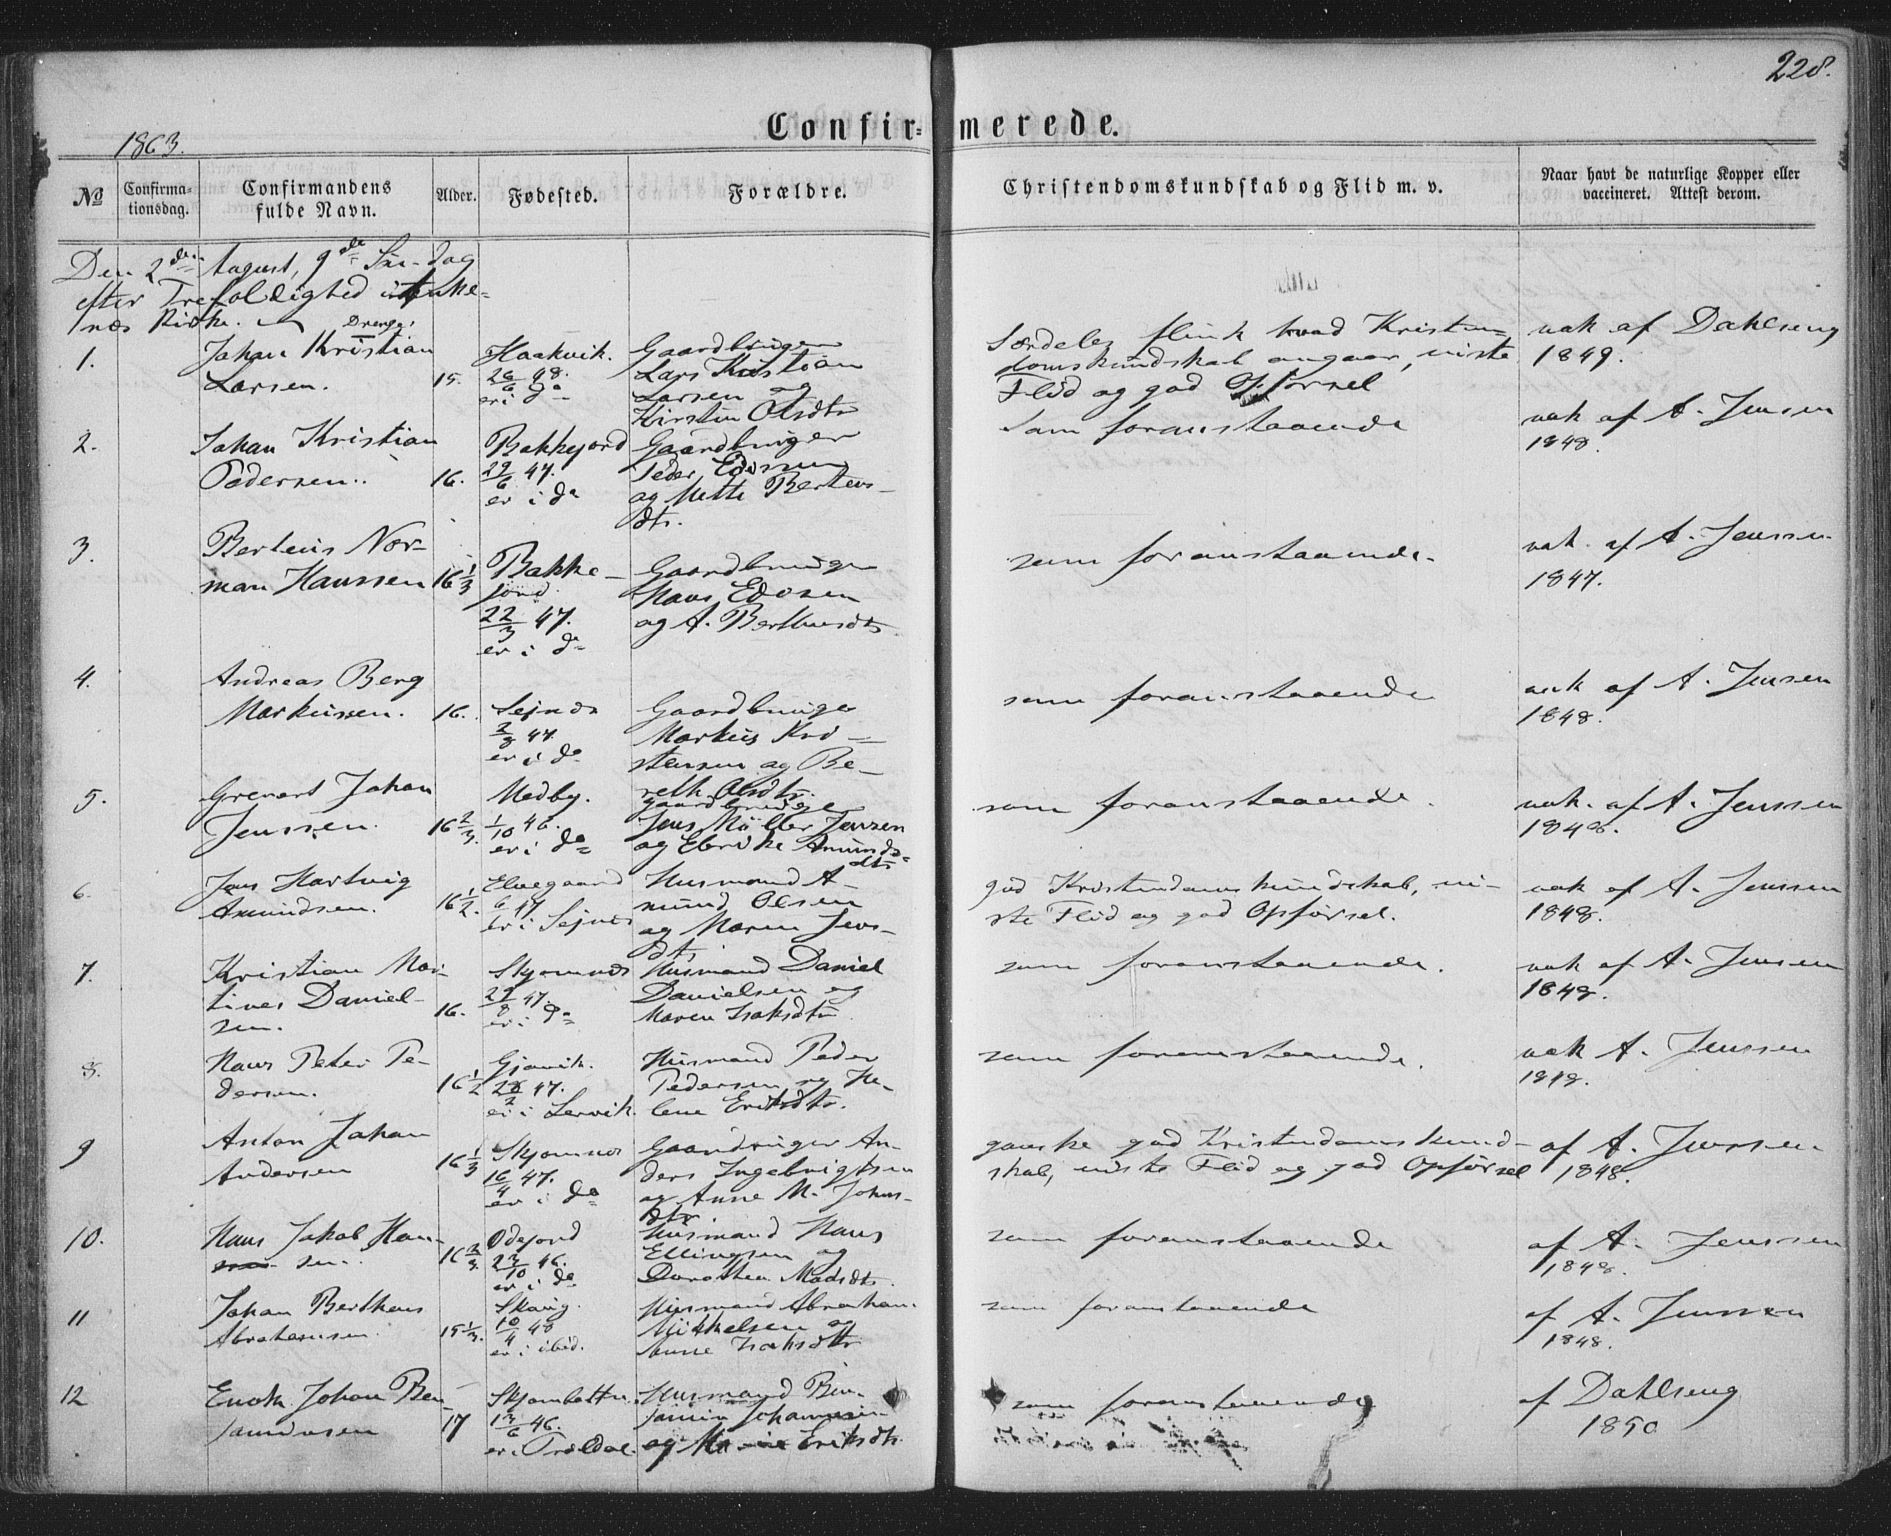 228.
Confir=merede.
1863.
No
Confirma-
tionsdag.
Confirmandens
fulde Navn.
Alder.
Fødested.
Forældre.
Christendomskundskab og Flid m. v.
Naar havt de naturlige Kopper eller
vaccineret. Attest derom.
Den 2den August, 9de Søn-dag
efter Trefoldighed i Anke-
næs Kirke.
Drenge.
1.
Johan Kristian
Larsen.
15.
Haakvik.
26/6 48.
er i do
Gaardbruger
Lars Kristian
Larsen og
Kirstin Olsdtr
Særdeles flink hvad Kristen-
domskundskab angaar, udviste
Flid og god Opførsel
vak af Dahlseng
1849.
2.
Johan Kristian
Pedersen.
16.
Bakkejord
29/6 47.
er i do
Gaardbruger
Peder Edosen
og Mette Bertens-
dtr.
Som foranstaaende
vak af A. Jensen
1848.
3.
Berteus Nor-
man Hanssen
16 1/3
Bakke-
jord
22/3 47.
er i do
Gaardbruger
Hans Edosen
og A. Berthusdtr
som foranstaaende.
vak. af A. Jenssen
1847.
4.
Andreas Berg
Markussen.
16.
Sejnes
2/8 47.
er i do
Gaardbruger
Markus Kri-
stensen og Be-
reth Olsdtr.
som foranstaaende
vak af A. Jensen
1848.
5.
Grenart Johan
Jenssen.
16 2/3.
Medby.
1/10 46.
er i do
Gaardbruger
Jens Møller Jensen
og Elerike Amunds-
dtr
som foranstaaende.
vak. af A. Jenssen
1848.
6.
Jens Hartvig
Amundsen.
16 1/2.
Elvegaard
er i Sejnes
Husmand A-
mund Olsen
og Maren Jens-
dtr
god Kristendomskundskab, vi-
ste Flid og god Opførsel.
vak af A. Jenssen
1848.
7.
Kristian Mar-
tines Daniel-
sen.
16.
Skjomnes
29/8 47.
er i do
Husmand Daniel
Danielsen og
Maren Isaksdtr
som foranstaaende.
vak af A. Jensen
1848.
8.
Hans Peter Pe-
dersen.
16 1/2
Gjavik.
28/2 47.
er i Lervik.
Husmand Peder
Pedersen og He-
lene Eriksdtr.
som foranstaaende.
vak A. Jenssen
1848.
9
Anton Johan
Andersen
16 1/3
Skjomnes
16/4 47.
er i do
Gaardbruger An-
ders Ingebrigtsen
og Anne M. Johns-
dtr
ganske god Kristendomskund-
skab, udviste Flid og god Opførsel
af A. Jenssen
1848.
10.
Hans Jakob Han-
sen.
16 2/3
Ødejord
23/10 46.
er i do
Husmand Hans
Ellingsen og
Dorothea Madsdtr.
som foranstaaende
af A. Jenssen
1848.
11
Johan Bertheus
Abrahamsen
15 1/3.
Skavig.
10/4 48
er i ibid.
Husmand Abraham
Mikkelsen og
Anne Isaksdtr
som foranstaaende
af A. Jenssen
1848.
12
Enok Johan Ben-
jaminsen
17
Skjombotten
13/6 46.
er i Trældal.
Husmand Ben-
jamin Johannesen
og Marie Eriksdtr.
som foranstaaende
af Dahlseng
1850